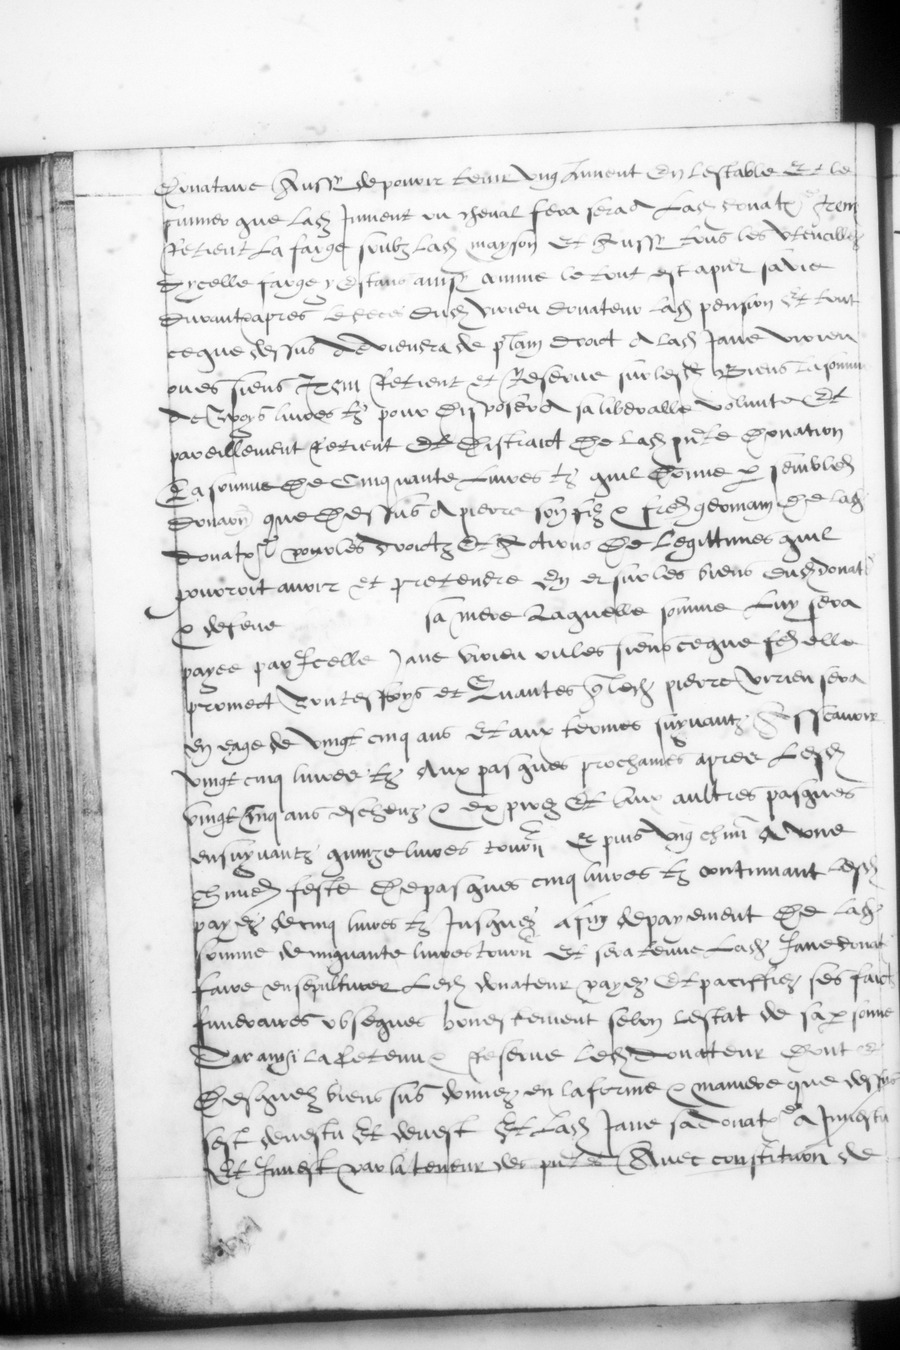 donataire Aussy de pouvoir tenir ung Jument En lestable Et le
fumier que lad Jument ou cheval fera sera a Lad donatre Item
Retient La farge soubz lad mayson Et Aussy tous les Utencilles
dycelle farge y Estans ainsy comme le tout est apur sa vie
durant apres le deces dud Vivien donateur lad pension Et tout
ce que dessus adviendra de plain droict a lad Jane vivien
ou es siens Item Retient et Reserve sur lesd Biens la somme
de Troys livres tz pour disposer a sa liberalle volunte Et
pareillement Retient Et distraict De Lad pnte donation
La somme De Cinquante Livres tz quil donne par semblable
donaon que Dessus A pierre son filz & frere germain De lad
donatre pour les droictz Et Actions De Legittimes quil
pourroit avoir et pretendre En et sur les biens dud donatr
& de feue sa mere Laquelle somme Luy sera
payee par Icelle Jane vivien ou les siens ce que fere elle
promect Toutesfoys et Quantes q led pierre vivien sera
en eage de vingt cinq ans Et aux termes suyvantz Assavoir
vingt cinq livres tz Aux pasques prochaines apres Lesd
vingt Cinq ans escheuz & expirez Et lan aultres pasques
ensuyvantz quinze livres tourn Et puis Ung chun A une
chune feste De pasques cinq livres tz continuant lesd
payez de cinq livres tz Jusques a fin de payement De Lad
somme de cinquante livres tourn Et sera tenue Lad Jane donat
faire ensepulturer Led donateur payer Et paciffier ses faictz
funeraires obseques honestement selon lestat de sa personne
Par ainsi la Retenu & Reserve Led Donateur Dont et
Desquelz biens sus donnez en la forme & maniere que dessus
sest devestu Et devest Et Lad Jane sa donatre a Jnvestu
Et Jnvest par la teneur des pntes Avec constitution de